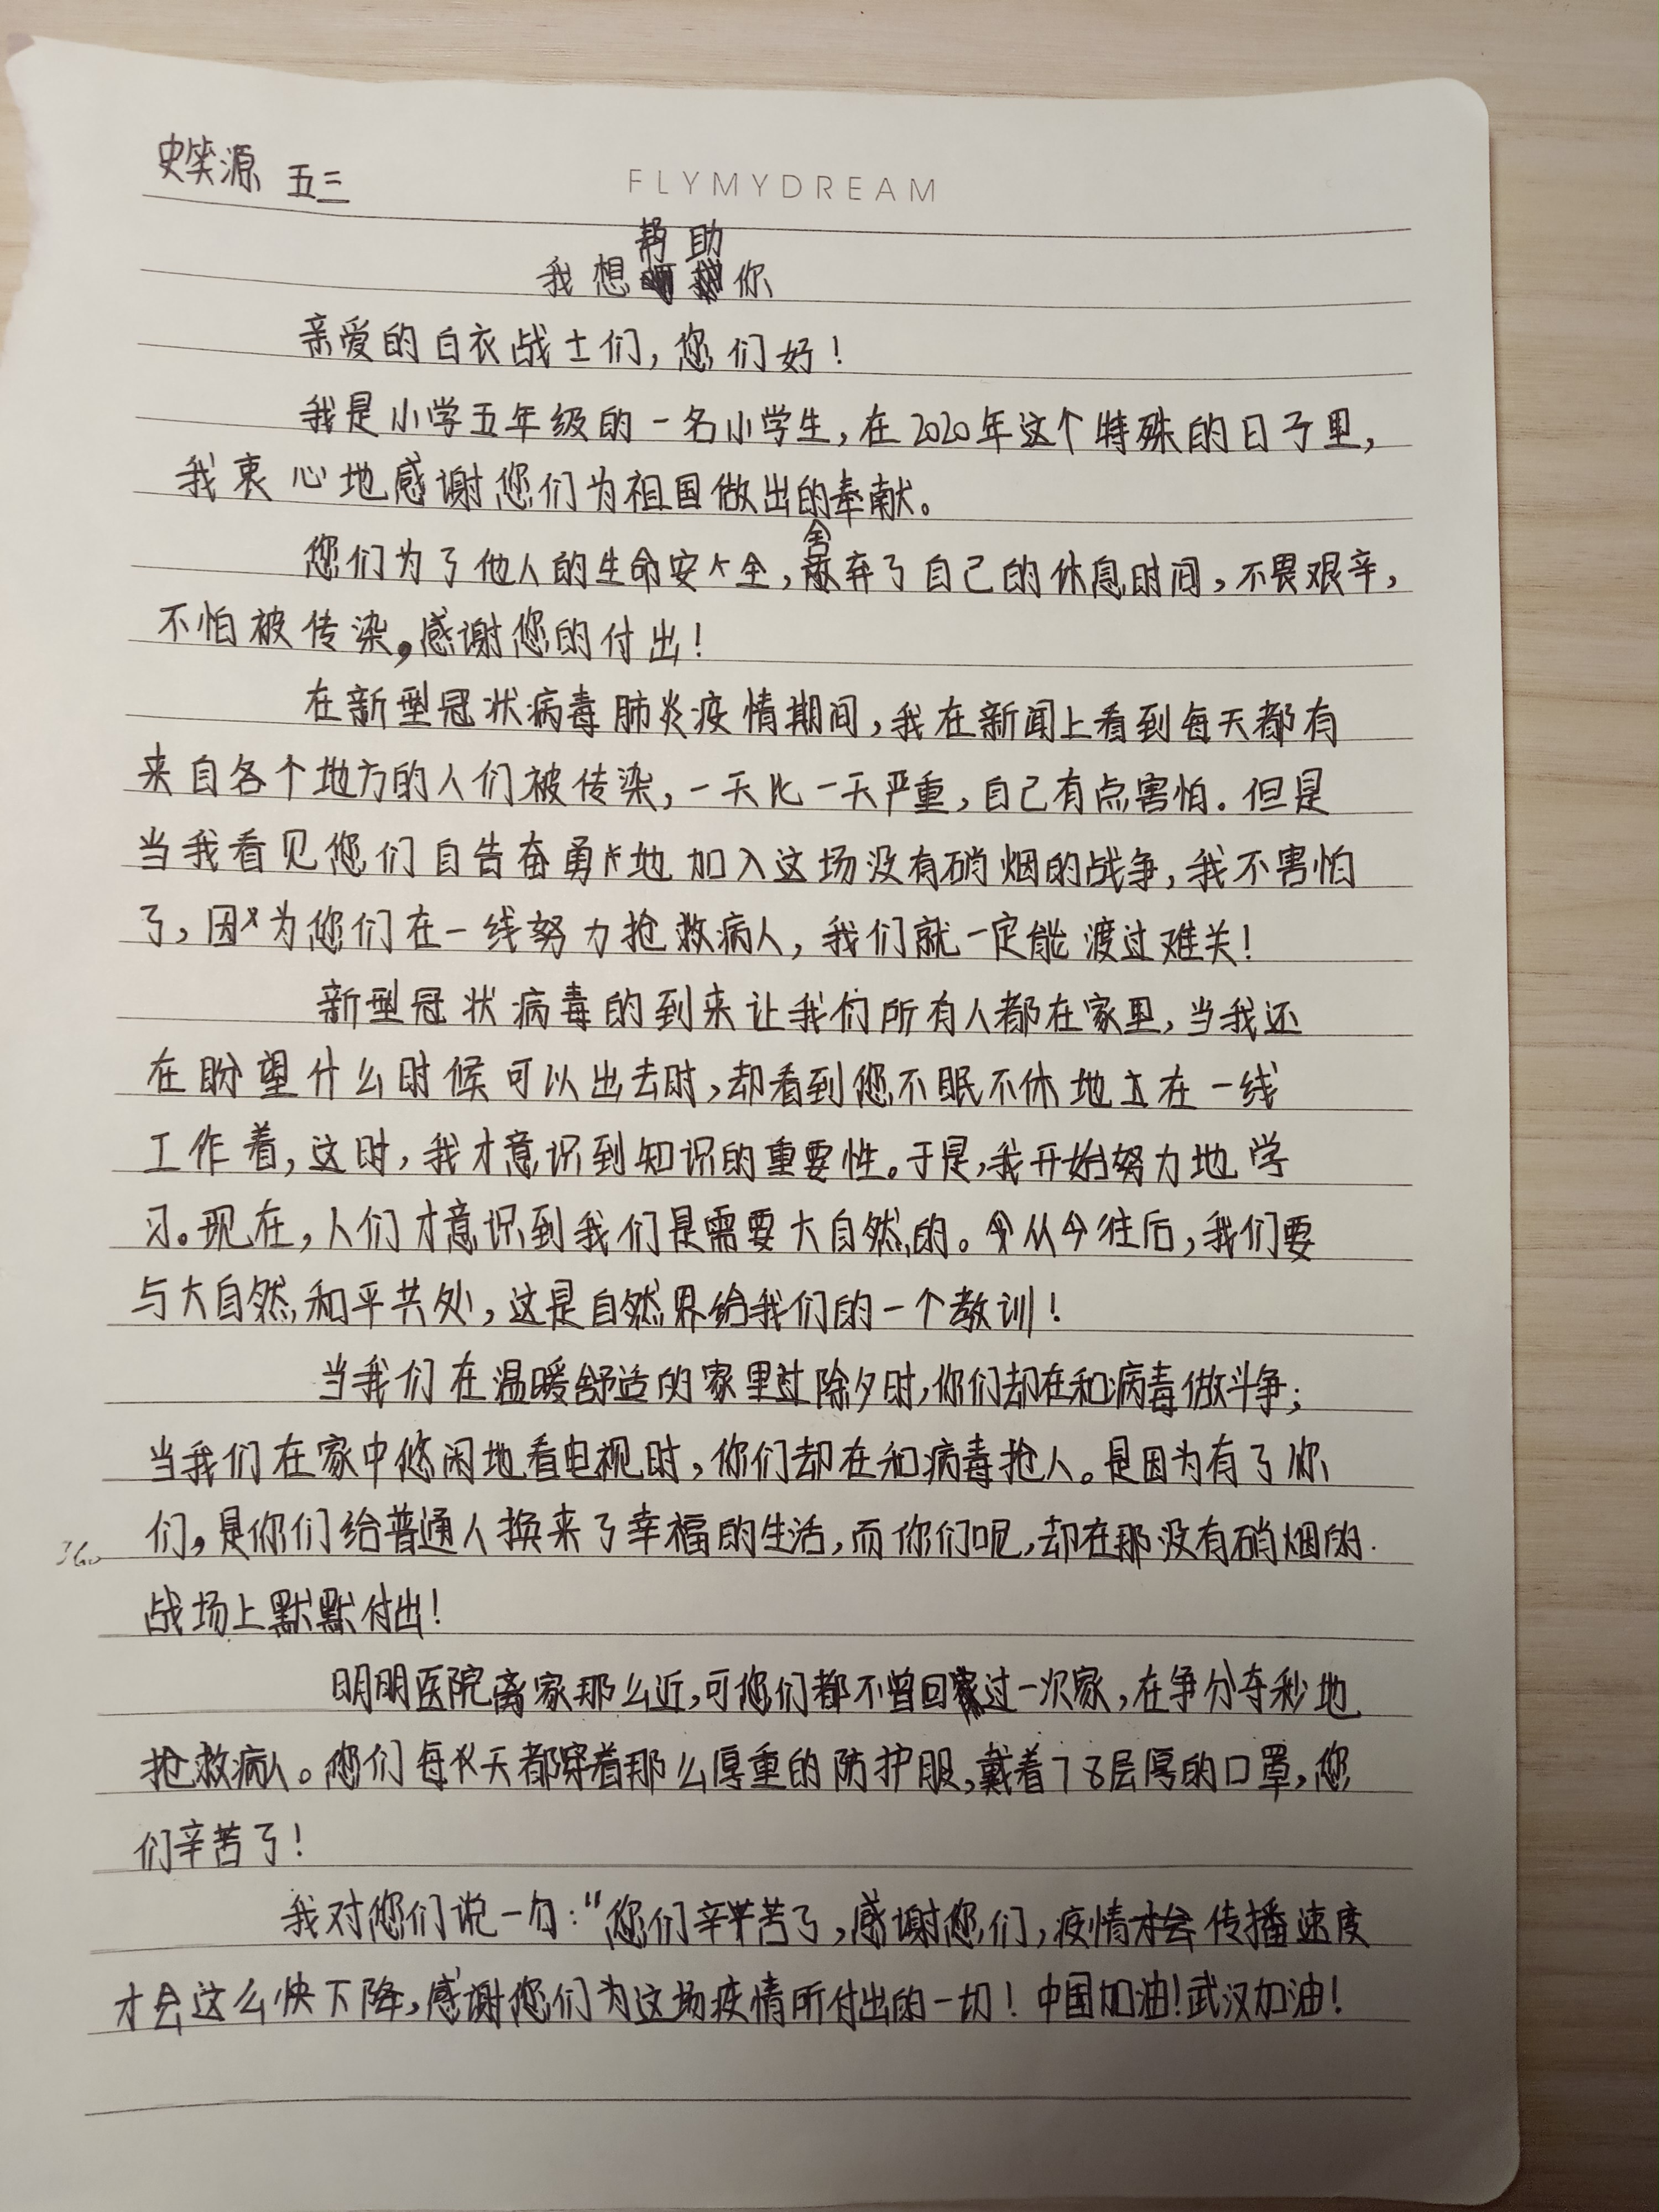 史笑源 五三
FLYMYDREAM
我想帮助你
亲爱的白衣战士们,您们好!
我是小学五年级的一名小学生,在2020年这个特殊的日子里,
我衷心地感谢您们为祖国做出的奉献。
您们为了他人的生命安全,舍弃了自己的休息时间,不畏艰辛,
不怕被传染,感谢您的付出!
在新型冠状病毒肺炎疫情期间,我在新闻上看到每天都有
来自各个地方的人们被传染,一天比一天严重,自己有点害怕.但是
当我看见您们自告奋勇地加入这场没有硝烟的战争,我不害怕
了,因为您们在一线努力抢救病人,我们就一定能渡过难关!
新型冠状病毒的到来让我们所有人都在家里,当我还
在盼望什么时候可以出去时,却看到您不眠不休地立在一线
工作着,这时,我才意识到知识的重要性。于是,我开始努力地学
习。现在,人们才意识到我们是需要大自然的。从今往后,我们要
与大自然和平共处,这是自然界给我们的一个教训!
当我们在温暖舒适的家里过除夕时,你们却在和病毒做斗争;
当我们在家中悠闲地看电视时,你们却在和病毒抢人。是因为有了你
们,是你们给普通人换来了幸福的生活,而你们呢,却在那没有硝烟的
360
战场上默默付出!
明明医院离家那么近,可您们都不曾回过一次家,在争分夺秒地
抢救病人。您们每天都穿着那么厚重的防护服,戴着78层厚的口罩,您
们辛苦了!
我对您们说一句:“您们辛苦了,感谢您们,疫情传播速度
才会这么快下降,感谢您们为这场疫情所付出的一切!中国加油!武汉加油!